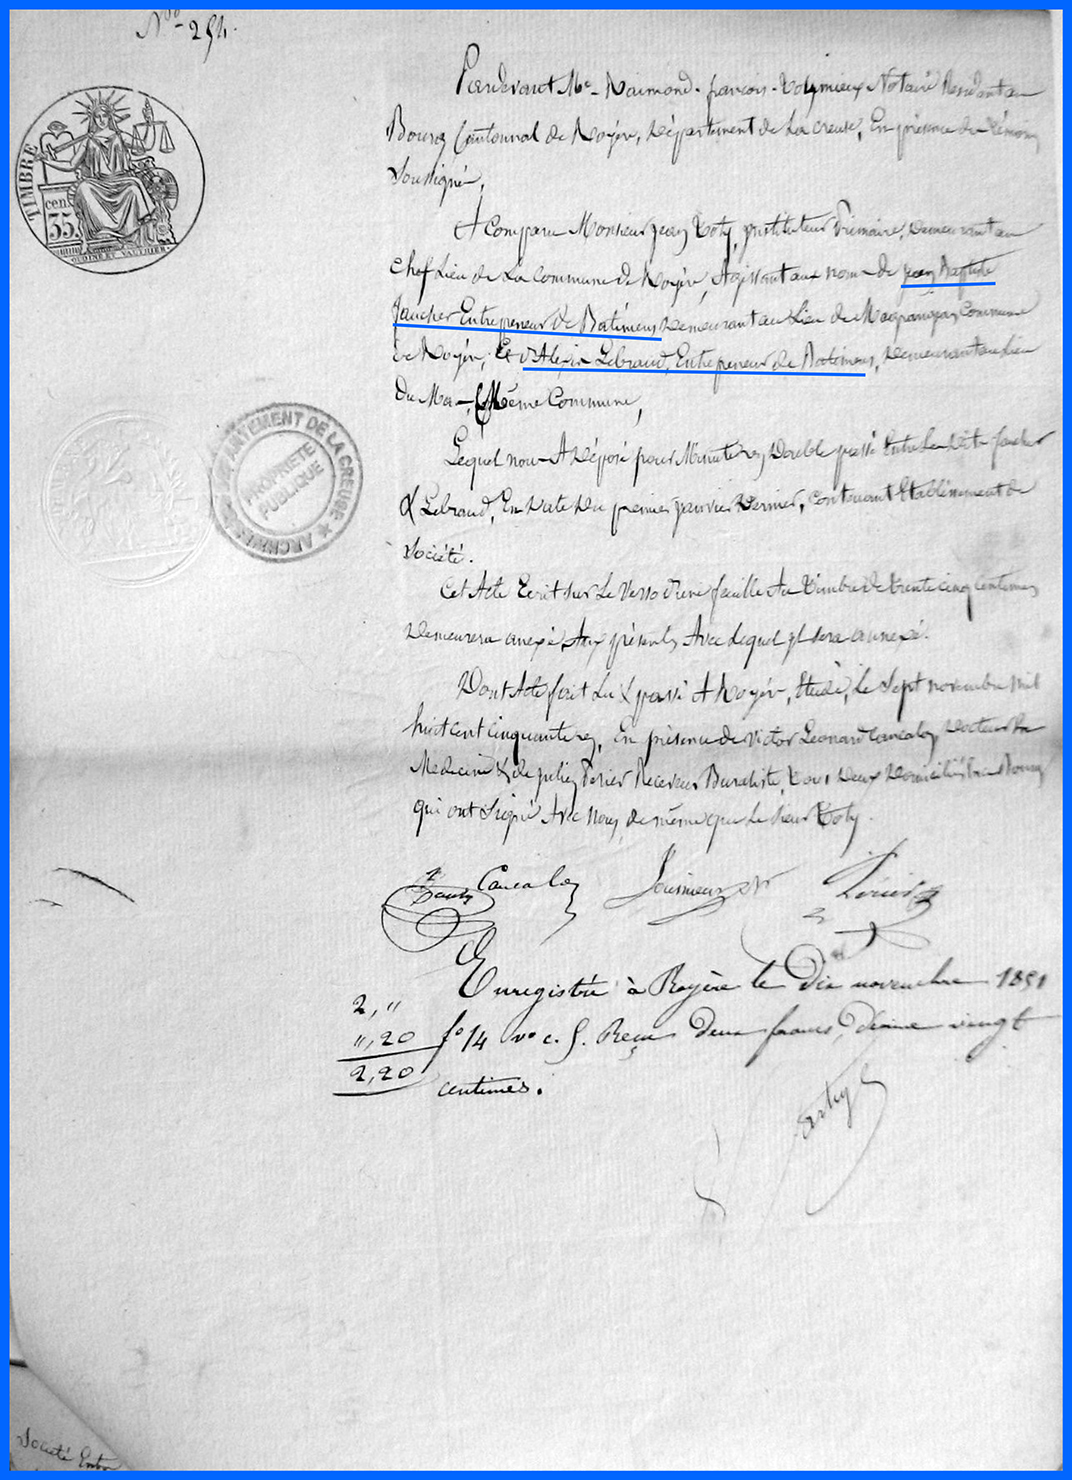 Nº 254.
Pardevant Me Raimond-françois- Notaire Résidant au
Bourg Cantonnal de Royère, Département de La Creuse, En présence des témoins
Soussignés,
A Comparu Monsieur Jean Coty, instituteur Primaire, Demeurant au
chef Lieu de La Commune de Royère, Agissant aux noms de Jean Baptiste
Faucher Entrepreneur de Batimens Demeurant au Lieu de Commune
de Royère, Et d'Alexis Lebraud, Entrepreneur de Batimens, Demeurant au Lieu
Du Mas, Même Commune,
Lequel nous A Déposé pour Minute un Double passé Entre Les Dits faucher
& Lebraud, En Date Du premier Janvier Dernier, Contenant Etablissement de
Société.
Cet Acte Ecrit sur Le Verso D'une feuille Au Timbre De trente cinq Centimes
Demeurera annexé Aux présentes Avec Lequel il sera annexé.
Dont Acte fait Lu & passé A Royère, Etude, Le Sept novembre mil
huit cent cinquante un, En présence de Victor Leonard Cancalon Docteur En
Medecine & de Receveur Buraliste, tous Deux Domiciliés Bourg
qui ont Signé Avec Nous, de même que Le Sieur Coty.
Cancalon
Enregistré à Royère le Dix novembre 1851
2, "
", 20 fº 14 vº c. 5. Reçu Deux francs, Décime vingt
2,20
centimes.
TIMBRE
cen.
35.
OUDINÉ ET VAUTHIER
DÉPARTEMENT DE LA CREUSE
ARCHIVES
PROPRIÉTÉ
PUBLIQUE
Société Entre